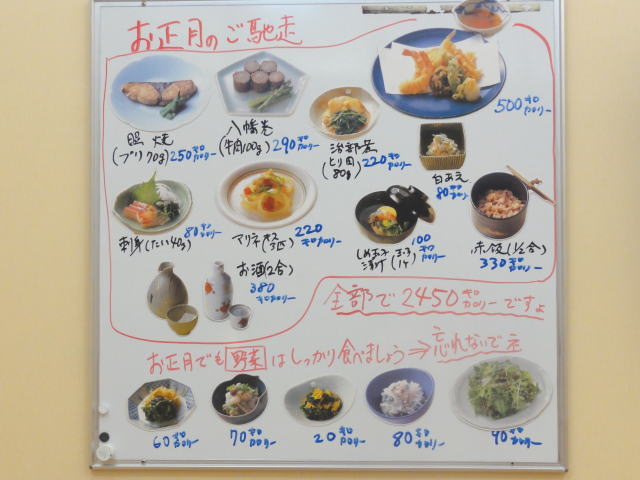 お正月のご馳走
照焼
(ブリ70g) 250キロカロリー
八幡巻
(牛肉100g) 290キロカロリー
治部煮
(とり肉80g) 220キロカロリー
500キロカロリー
白あえ
80キロカロリー
刺身(たい40g) 80キロカロリー
マリネ(キス3匹) 220キロカロリー
100キロカロリー
赤飯(1/2合)
330キロカロリー
お酒(2合)
380キロカロリー
全部で2450キロカロリーですよ
お正月でも野菜はしっかり食べましょう⇒忘れないでネ
60キロカロリー
70キロカロリー
20キロカロリー
80キロカロリー
40キロカロリー